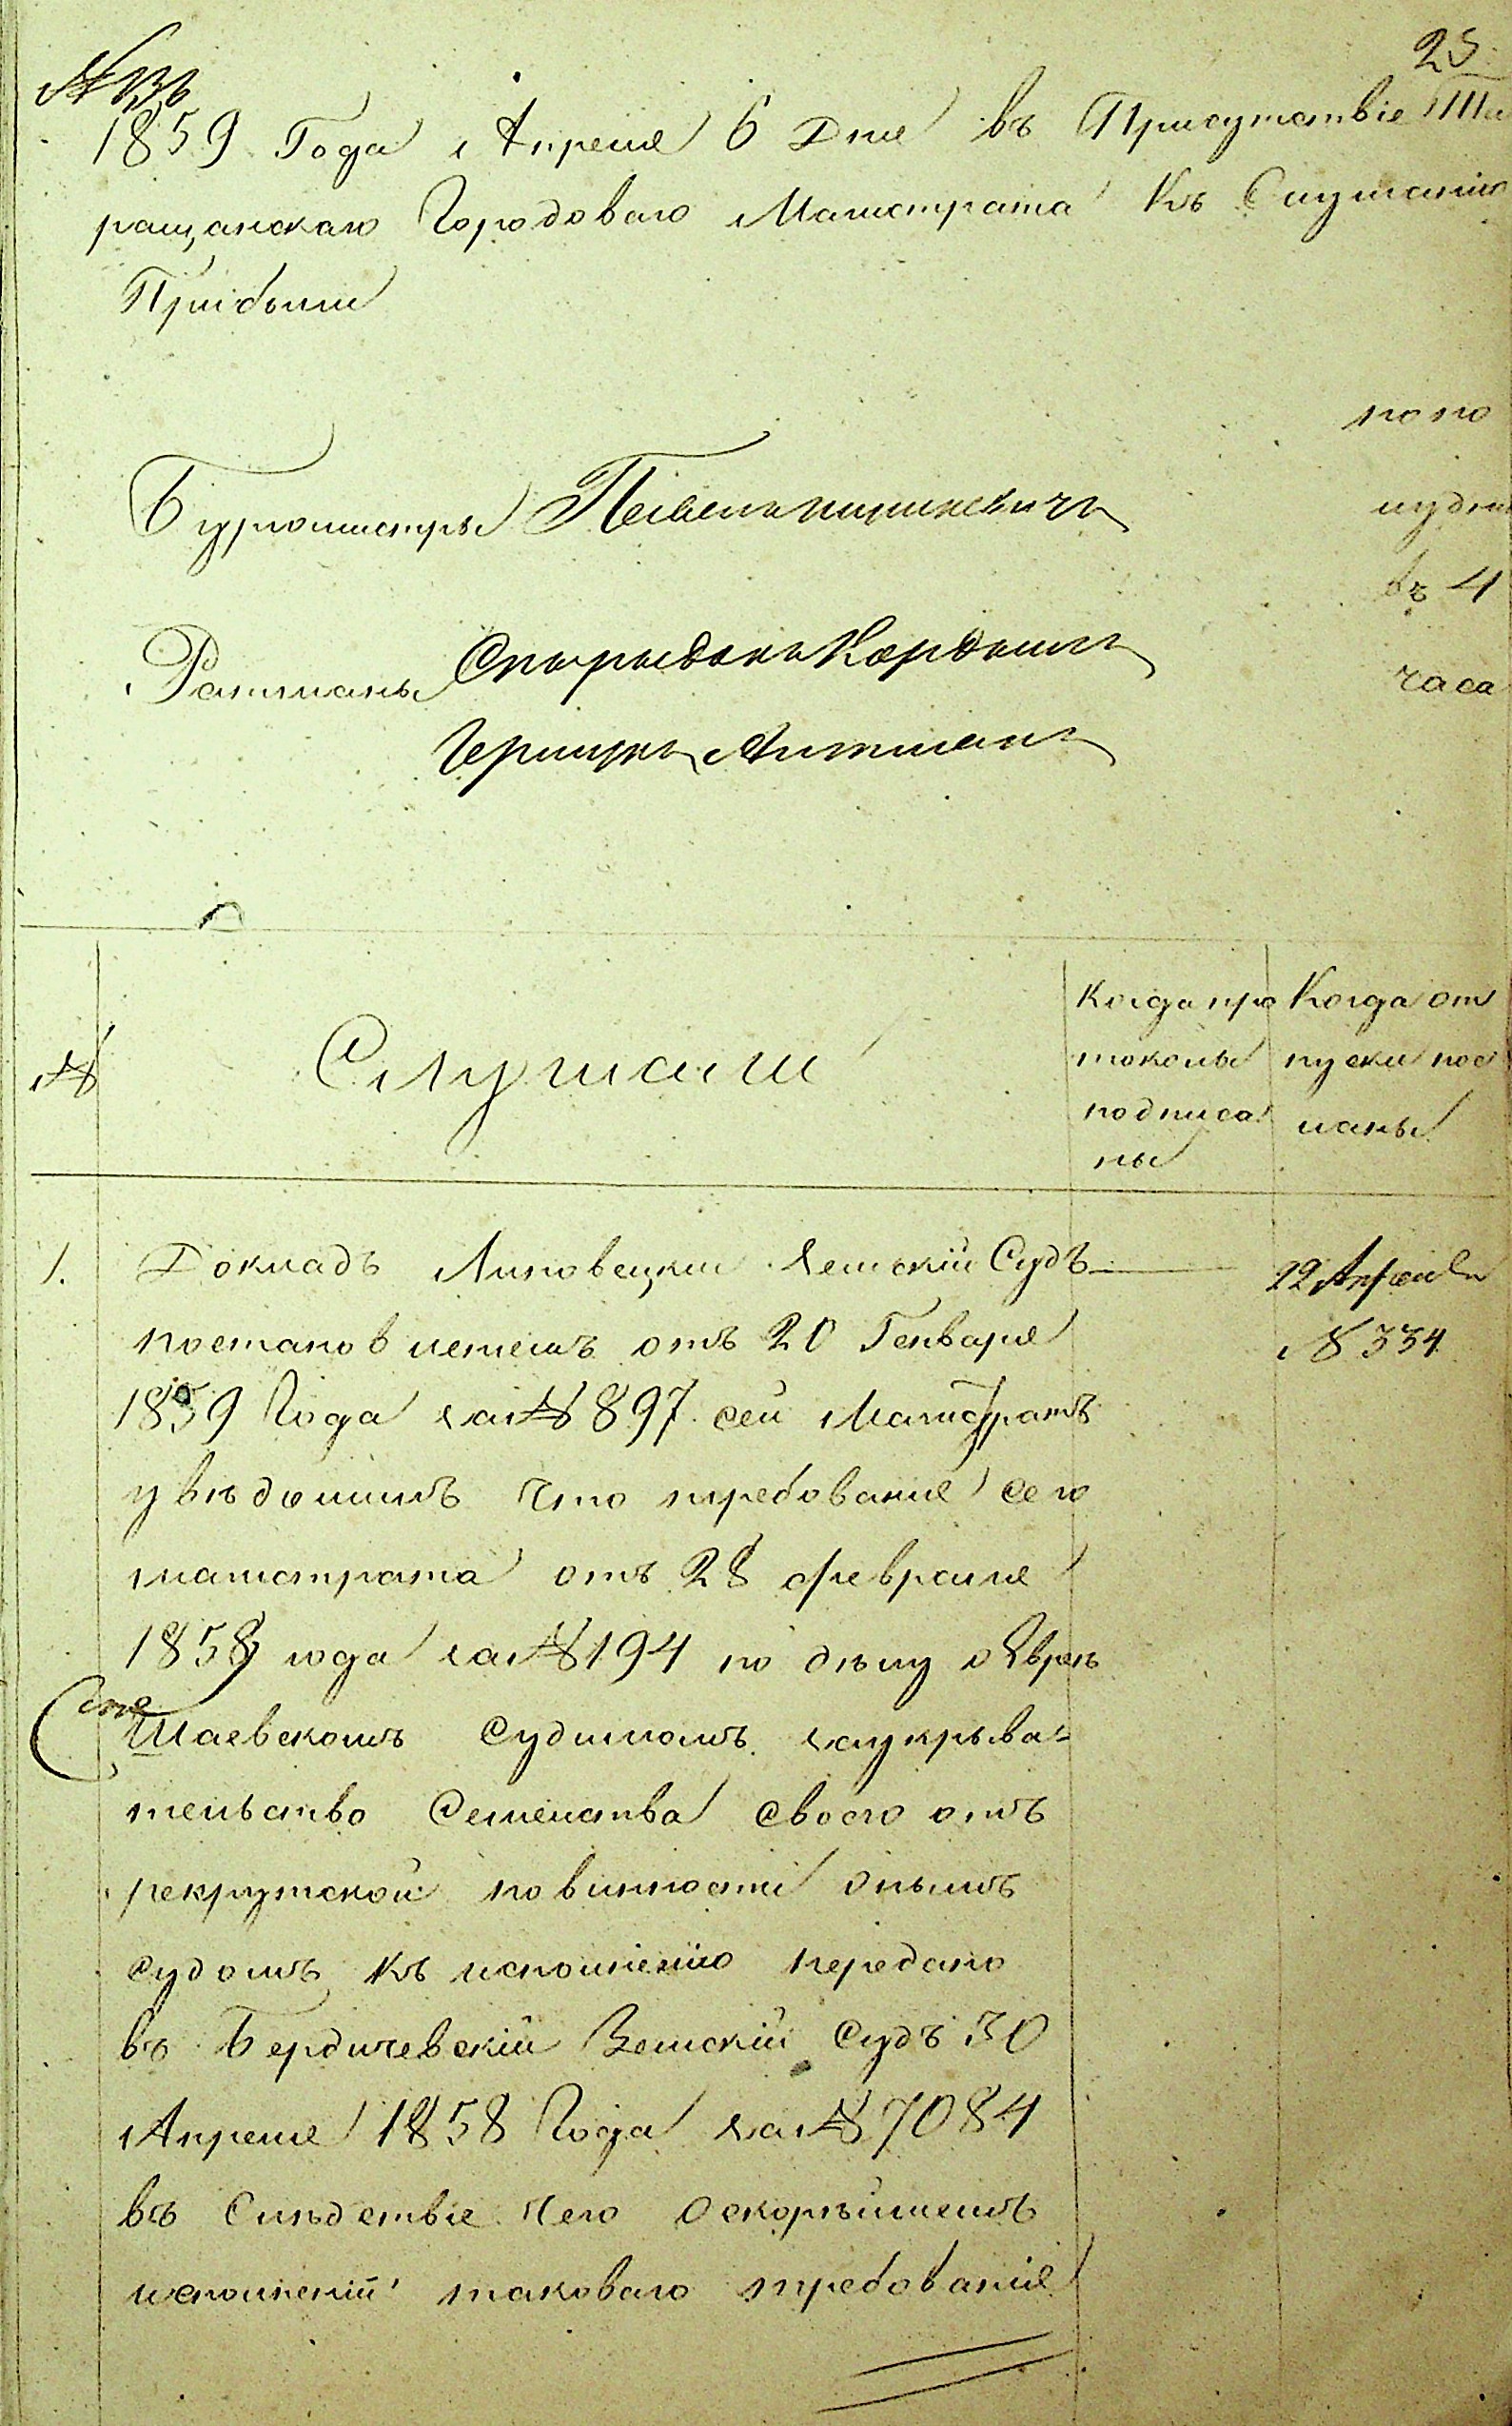 25
№ 136
1859 Года Апреля 6 Дня въ Присутствіе Та
ращанскаго Городоваго Магистрата Къ Слушанію
Прибыли
по по
Бургомистры
лудни
въ 4
Ратманы Спиридонъ
часа
№
Слушали
Когда про
токолы
подписа
ны
Когда от
пуски пос
ланы
1. Докладъ Липовецкій Земскій Судъ
постановленіемъ отъ 20 Генваря
1859 Года за № 897 сей Магистратъ
увѣдомилъ что требованіе сего
магистрата отъ 28 февраля
1858 года за № 194 по дѣлу о Евреѣ
Шаевскомъ Судимомъ заукрыва-
тельство Семейства своего отъ
рекрутской повинности онымъ
судомъ къ исполненію передано
въ Бердичевскій Земскій Судъ 30
Апреля 1858 Года за № 7084
въ Слѣдствіе чего Оскорѣйшемъ
исполненіи таковаго требованія
22 Апреля
№ 334